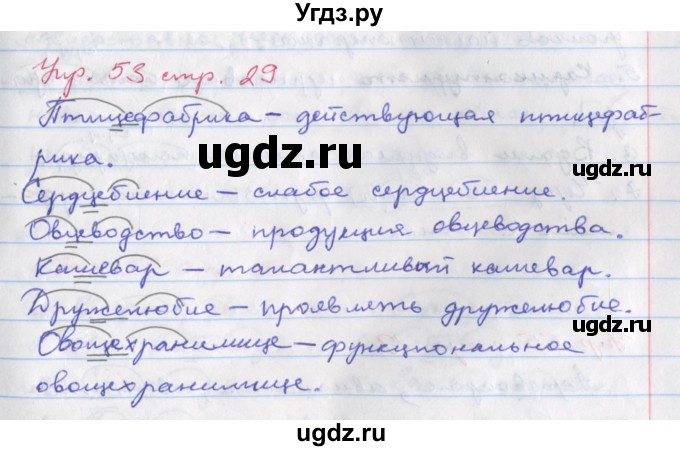 Угдз.ру
Упр. 53 стр. 29
Птицефабрика – действующая птицефаб-
рика.
ugdz.ru
Сердцебиение – слабое сердцебиение.
Овцеводство – продукция овцеводства.
Кашевар – талантливый кашевар.
Дружелюбие – проявлять дружелюбие.
ugdz.ru
Овощехранилище – функциональное
овощехранилище.
ugdz.ru